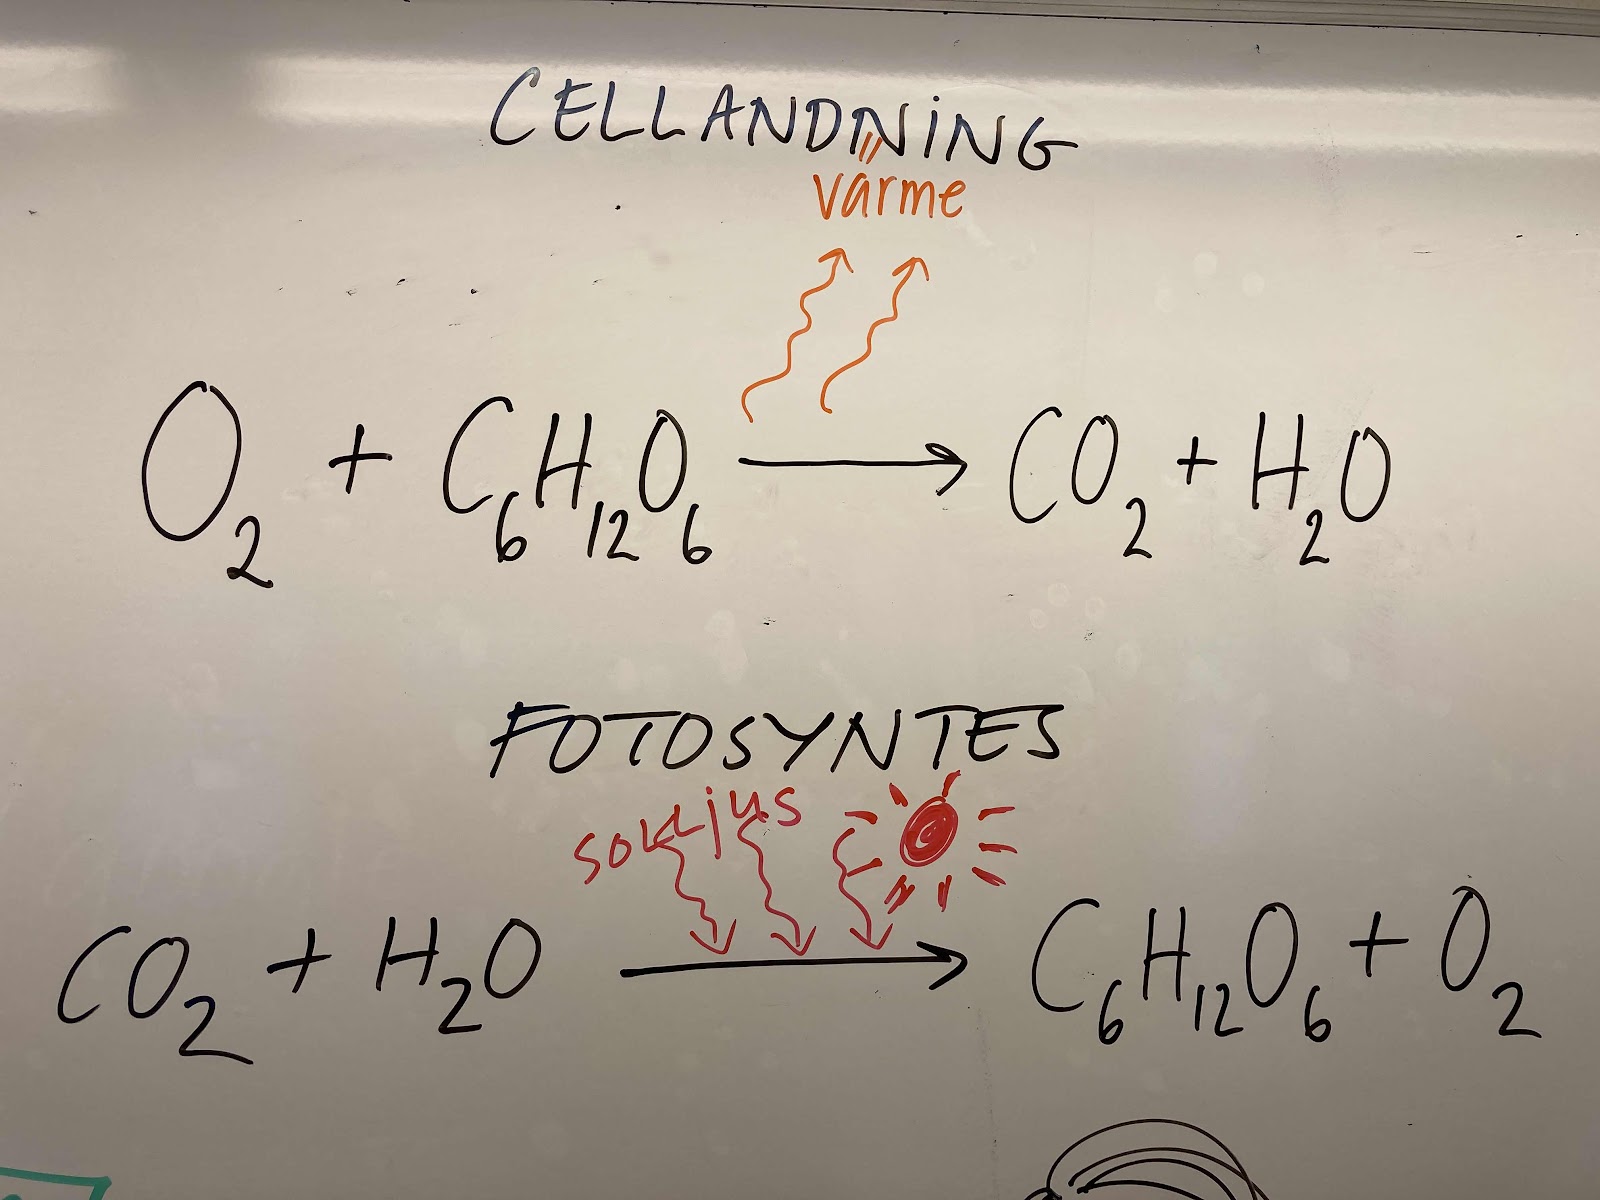 CELLANDNING
värme
O₂ + C₆H₁₂O₆ → CO₂ + H₂O
FOTOSYNTES
solljus
CO₂ + H₂O → C₆H₁₂O₆ + O₂